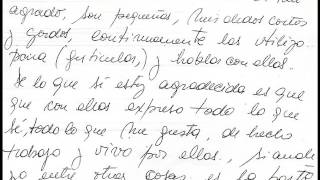 agrado, son pequeñas, mis dedos cortos
y gordos, continuamente las utilizo
para (gesticular,) y hablar con ellas.
De lo que si estoy agradecida es que
que con ellas expreso todo lo que
sé, todo lo que me gusta, de hecho
trabajo y vivo por ellas.,
no entre otras cosas es la